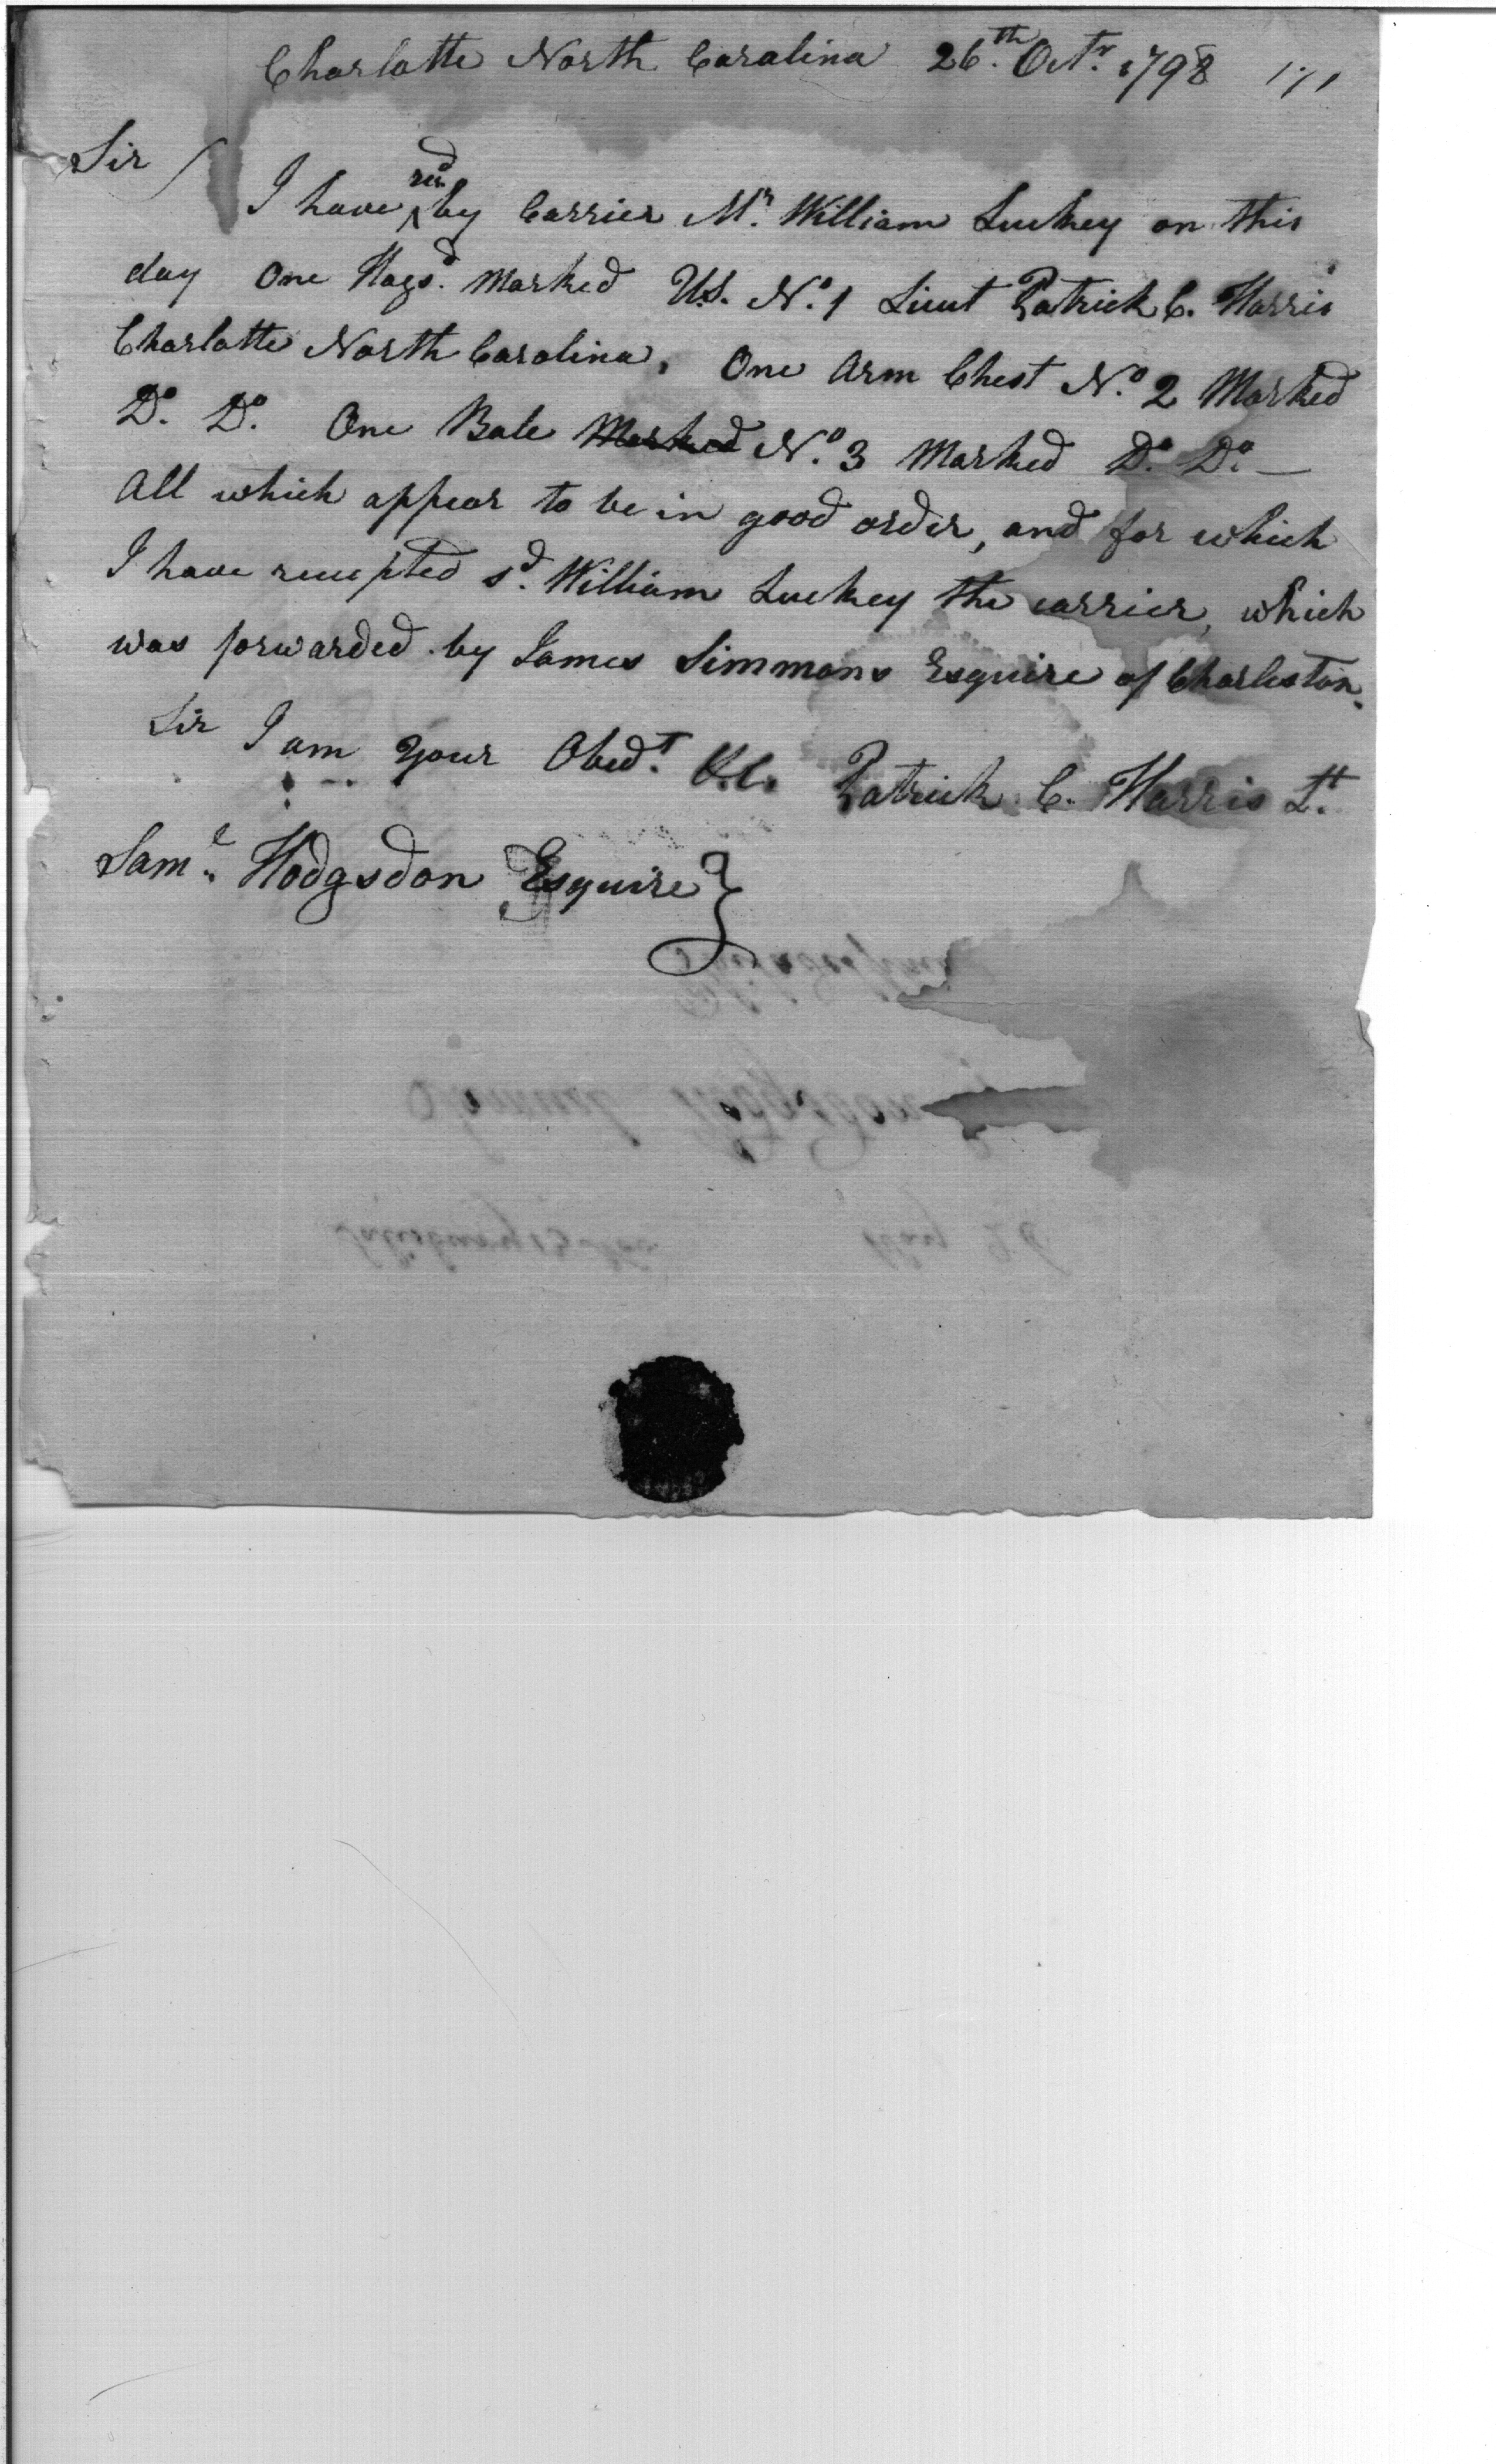 Charlotte North Carolina 26th. Octr. 1798
Sir
I have recd. by Carrier Mr. William Luckey on this
day One Hogsd. Marked U.S. No. 1 Lieut Patrick C. Harris
Charlotte North Carolina, One Arm Chest No. 2 Marked
Do. Do. One Bale Marked No. 3 Marked Do. Do. —
All which appear to be in good order, and for which
I have recepted sd. William Luckey the carrier, which
was forwarded by James Simmons Esquire of Charleston.
Sir I am Your Obedt. &c. Patrick C. Harris Lt.
Saml. Hodgsdon Esquire }
Philadelphia
Samuel Hodgsdon
Salisbury 13 Nov